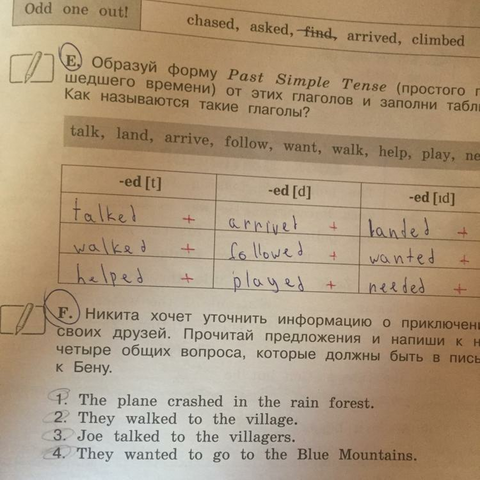 Odd one out!
chased, asked, find, arrived, climbed
E. Образуй форму Past Simple Tense (простого п
шедшего времени) от этих глаголов и заполни табл
Как называются такие глаголы?
talk, land, arrive, follow, want, walk, help, play, ne
-ed [t] -ed [d] -ed [ɪd]
talked + arrived + landed +
walked + followed + wanted +
helped + played + needed +
F. Никита хочет уточнить информацию о приключени
своих друзей. Прочитай предложения и напиши к н
четыре общих вопроса, которые должны быть в пись
к Бену.
1. The plane crashed in the rain forest.
2. They walked to the village.
3. Joe talked to the villagers.
4. They wanted to go to the Blue Mountains.